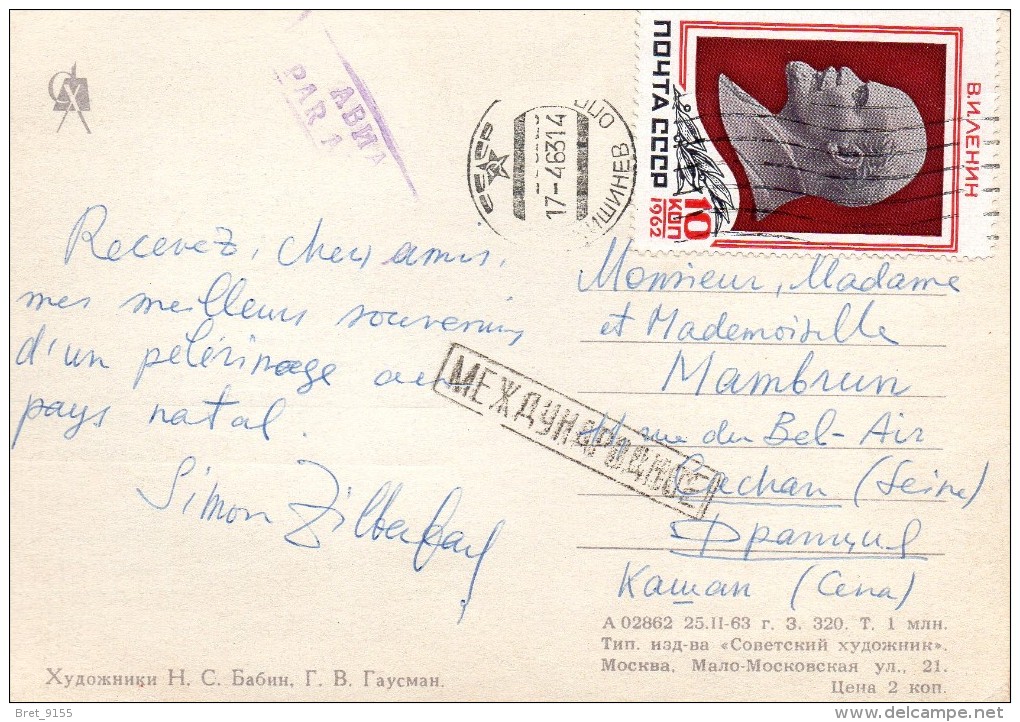 АВИА
PAR A
СССР
17-4 63 14
КИШИНЕВ
ПОЧТА СССР
10
КОП
1962
В.И.ЛЕНИН
Recevez, chers amis,
mes meilleurs souvenirs
d'un pélérinage au
pays natal.
Simon
МЕЖДУНАРОДНОЕ
Monsieur, Madame
et Mademoiselle
Mambrun
rue du Bel-Air
Cachan (Seine)
Франция
Кашан (Сена)
А 02862 25.II-63 г. З. 320. Т. 1 млн.
Тип. изд-ва «Советский художник».
Москва, Мало-Московская ул., 21.
Цена 2 коп.
Художники Н. С. Бабин, Г. В. Гаусман.
Bret_9155